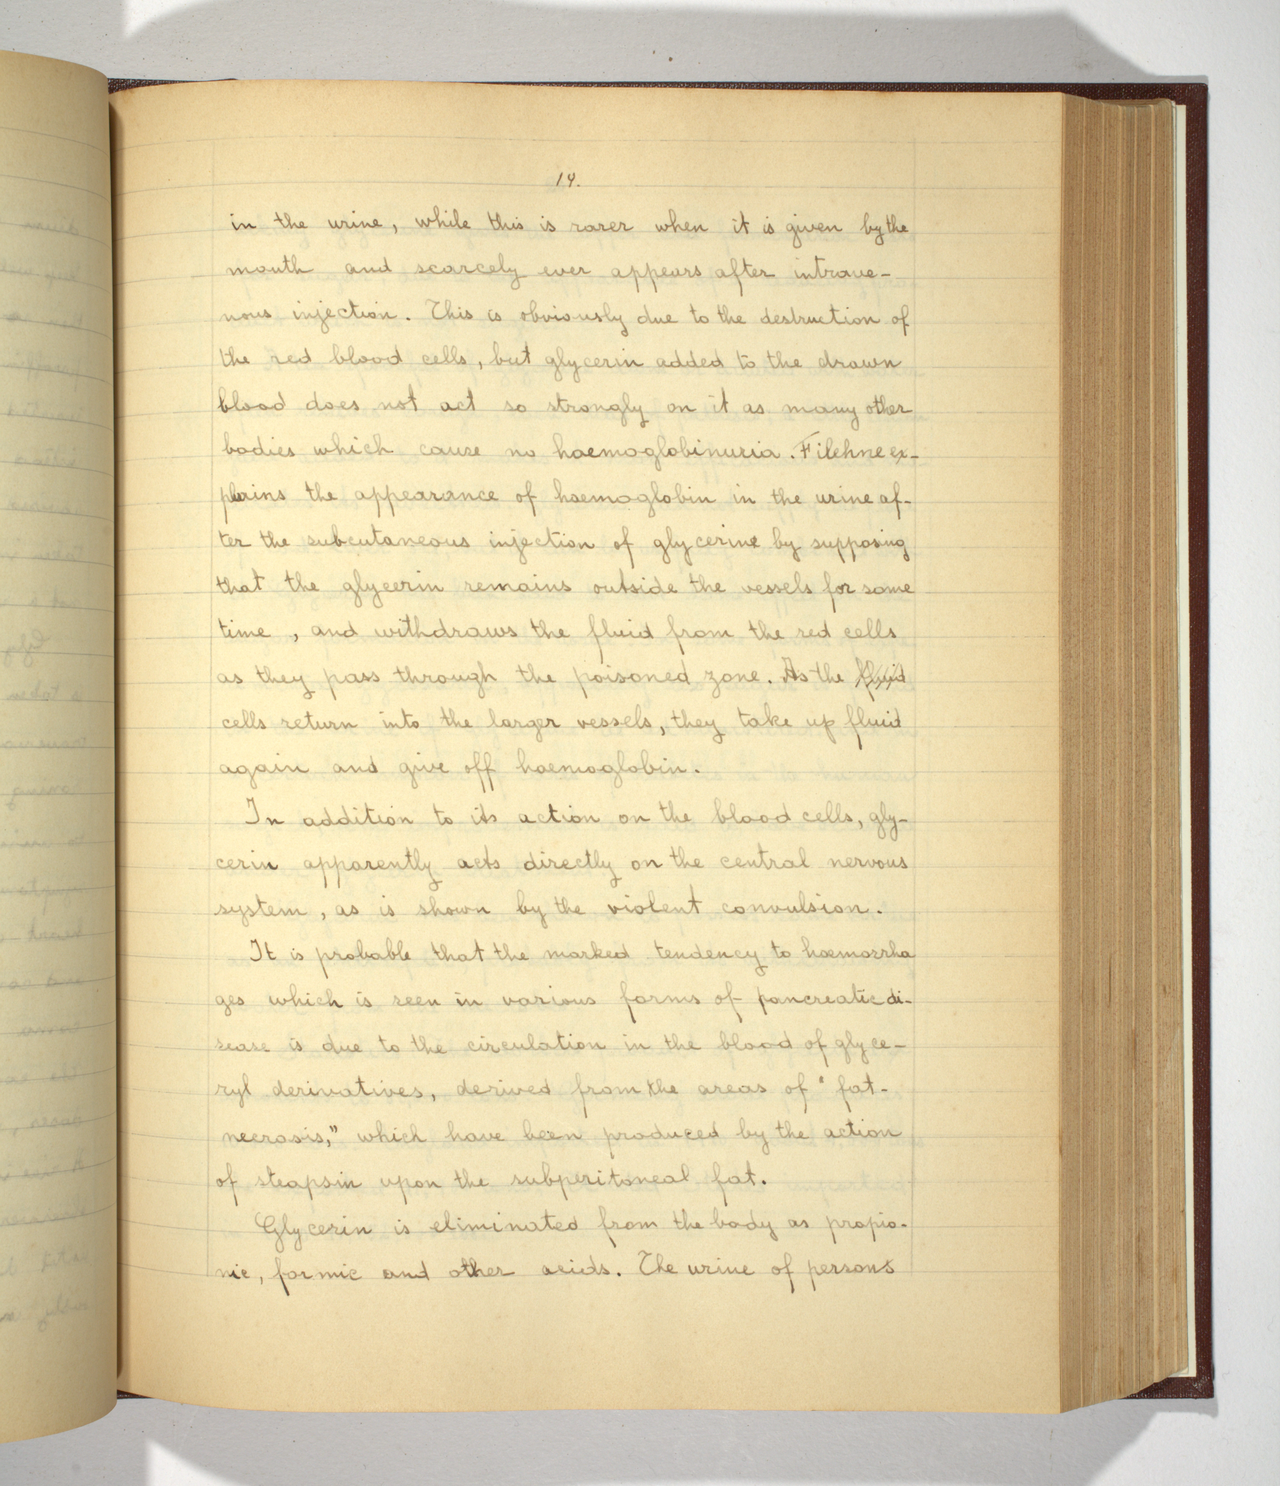 14.
in the urine, while this is rarer when it is given by the
mouth and scarcely ever appears after intrave-
nous injection. This is obviously due to the destruction of
the red blood cells, but glycerin added to the drawn
blood does not act so strongly on it as many other
bodies which cause no haemoglobinuria. Filehne ex-
plains the appearance of haemoglobin in the urine af-
ter the subcutaneous injection of glycerine by supposing
that the glycerin remains outside the vessels for some
time, and withdraws the fluid from the red cells
as they pass through the poisoned zone. As the fluid
cells return into the larger vessels, they take up fluid
again and give off haemoglobin.
In addition to its action on the blood cells, gly-
cerin apparently acts directly on the central nervous
system, as is shown by the violent convulsion.
It is probable that the marked tendency to haemorrha
ges which is seen in various forms of pancreatic di-
sease is due to the circulation in the blood of glyce-
ryl derivatives, derived from the areas of "fat-
necrosis," which have been produced by the action
of steapsin upon the subperitoneal fat.
Glycerin is eliminated from the body as propio-
nic, formic and other acids. The urine of persons